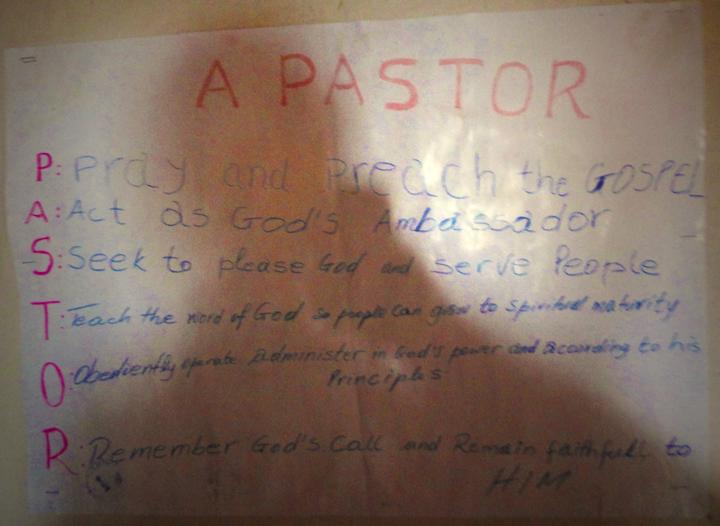 A PASTOR
P: Pray and Preach the GOSPEL
A: Act as God's Ambassador
S: Seek to please God and serve People
T: Teach the word of God so people can grow to spiritual maturity
O: Obediently operate administer in God's power and according to his
Principles
R: Remember God's Call and Remain faithfull to
HIM